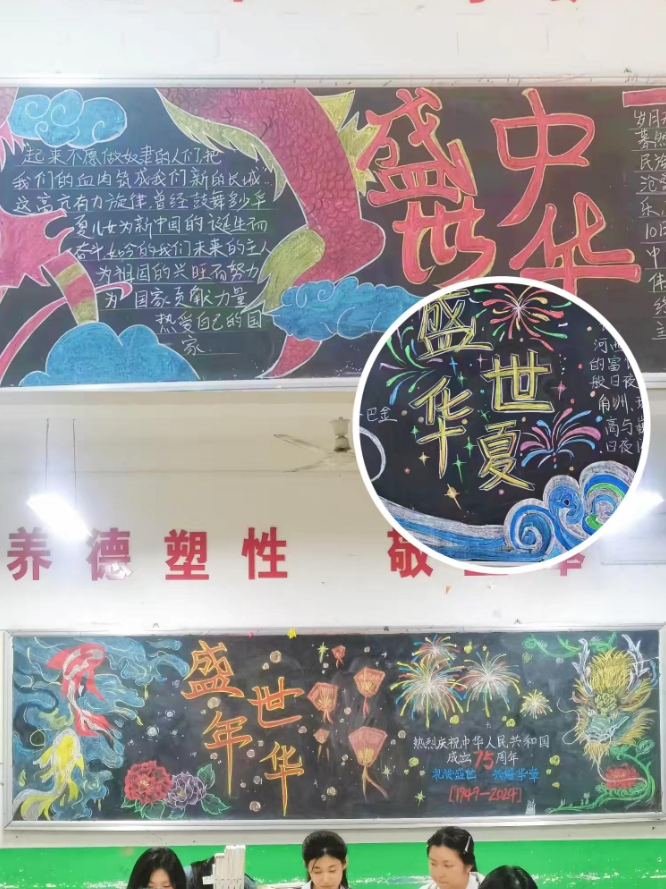 起来不愿做奴隶的人们,把
我们的血肉筑成我们新的长城...
这高亢有力旋律曾经鼓舞多少华
夏儿女为新中国的诞生而
奋斗.如今的我们未来的主人
为祖国的兴旺而努力
为国家贡献力量
热爱自己的国
家......
盛世
中华
岁月
蓦然
民族
沧
乐
10月
中
体
经
主
巴金
盛世
华夏
河西
的富
般日夜
角洲
高与
日夜
养德塑性 敬
盛世
年华
热烈庆祝中华人民共和国
成立75周年
礼赞盛世 华章
[1949-2024]